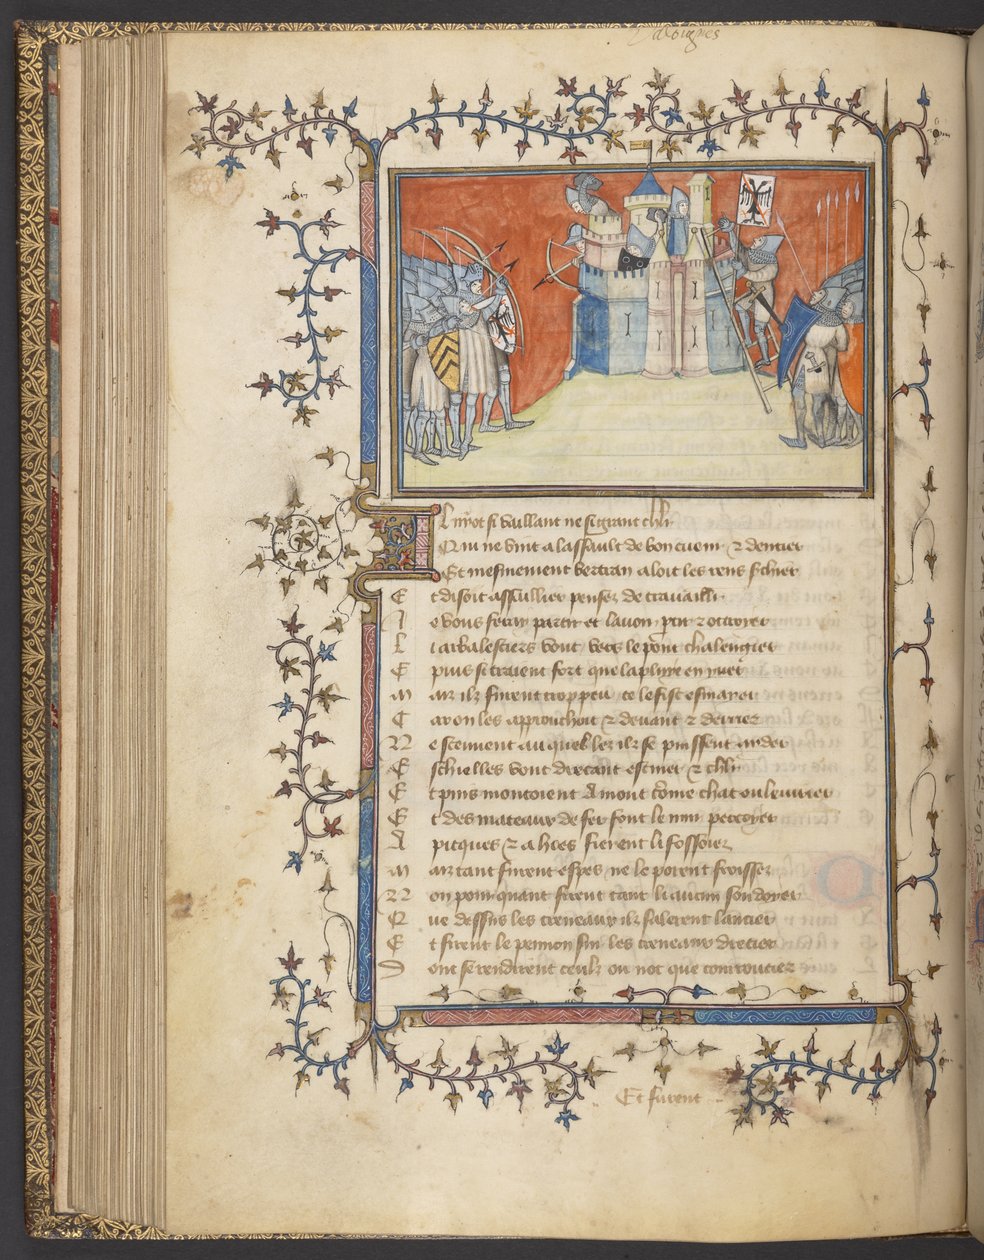 Valoignes
Il n'i ot si vaillant ne si grant chlr
Qui ne vinst a lassault de bon cuer & dentier
Et mesmement bertran aloit les rens serchier
Et disoit assaillier pensez de travaillier
Je vous feray partir et lavoir prest & ottroyer
Li arbalestiers vont vers le pont chalengier
E puis si traient fort que la pluye en
Maiz ilz furent trop peu ce les fist esmayer
Car on les approuchoit & devant & derrier
Ne scevent auquel lez ilz se puissent aidier
Eschielles vont drecant escuier & chlr
Et puis montoient amont come chat ou leuvrier
Et des marteaux de fer font le mur percoyer
A picques & a hoes fierent li fossoier
Maiz tant furent espes ne le porent froisser
Non pourquant firent tant li aucun soudoyer
Que dessus les creneaux ilz salirent lancier
Et firent le pennon sur les creneaux drecier
Dont se rendirent ceulz ou not que courroucier
Et furent